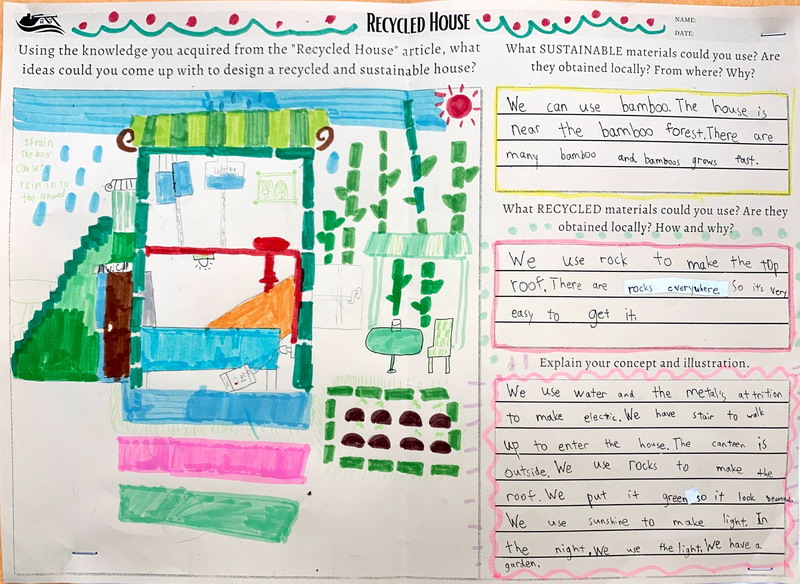 RECYCLED HOUSE
NAME:
DATE:
Using the knowledge you acquired from the "Recycled House" article, what
ideas could you come up with to design a recycled and sustainable house?
If rain
the box
rain in to
the ground
water
What SUSTAINABLE materials could you use? Are
they obtained locally? From where? Why?
We can use bamboo. The house is
near the bamboo forest. There are
many bamboo and bamboos grows fast.
What RECYCLED materials could you use? Are they
obtained locally? How and why?
We use rock to make the top
roof. There are rocks everywhere. So it's very
easy to get it.
Explain your concept and illustration.
We use water and the metal's attrition
to make electric. We have stair to walk
up to enter the house. The canteen is
outside. We use rocks to make the
roof. We put it green so it look beautiful.
We use sunshine to make light. In
the night, we use the light. We have a
garden.